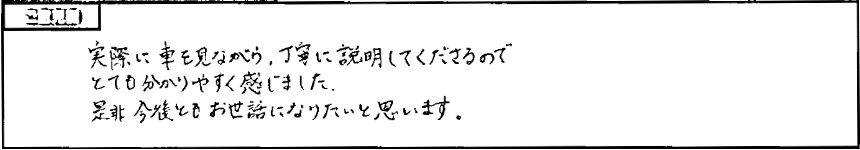 実際に車を見ながら、丁寧に説明してくださるので
とても分かりやすく感じました.
是非今後ともお世話になりたいと思います。